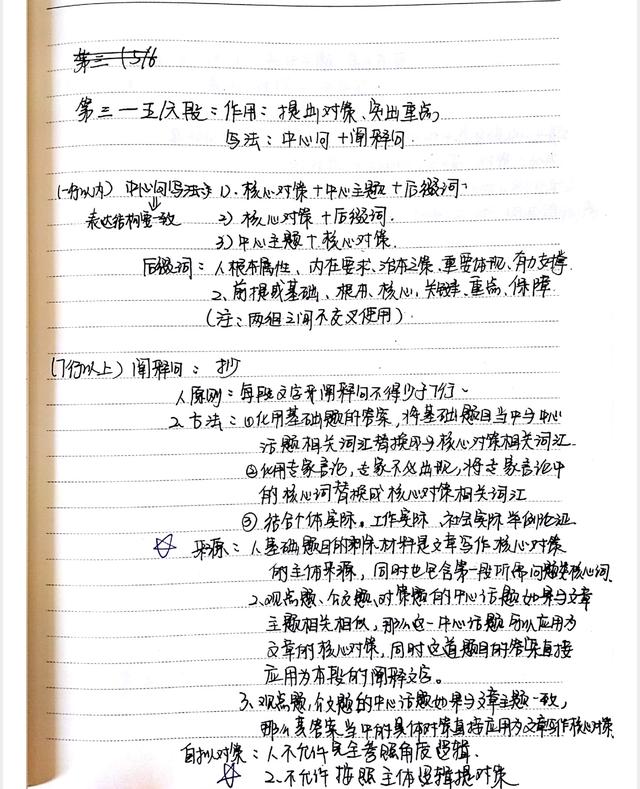 第三—五/六段：作用：提出对策、突出重点
写法：中心句+阐释句
(一行以内) 中心句写法：1). 核心对策+中心主题+后缀词
表达结构要一致 2) 核心对策+后缀词.
3) 中心主题+核心对策.
后缀词：1、根本属性、内在要求、治本之策、重要体现、有力支撑
2、前提或基础、根本、核心、关键、重点、保障
(注：两组之间不交叉使用)
(7行以上) 阐释句：抄
1、原则：每段文字来阐释句不得少于7行.
2、方法：①化用基础题的答案，将基础题目当中与中心
话题相关词汇替换成与核心对策相关词汇
②化用专家言论，专家不必出现，将专家言论中
的核心词替换成核心对策相关词汇
③ 结合个体实际。工作实际 社会实际举例论证
来源：1、基础题目的剩余材料是文章写作核心对策
的主体来源，同时也包含第一段所需问题类核心词
2、观点题、公文题、对策题的中心话题如果与文章
主题相关相似，那么这一中心话题可以应用为
文章的核心对策，同时这道题目的答案直接
应用为本段的阐释文字。
3、观点题，公文题的中心话题如果与文章主题一致，
那么该答案当中的具体对策直接应用为文章写作核心对策
自拟对策：1、不允许完全参照角度逻辑.
2、不允许按照主体逻辑提对策